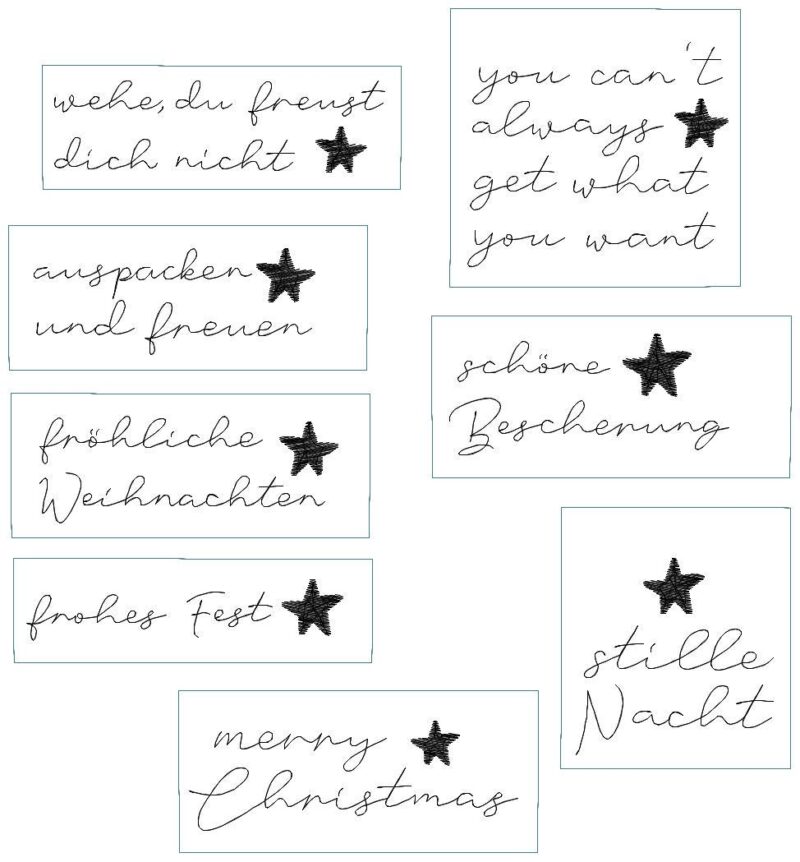 wehe, du freust
dich nicht
you can't
always
get what
you want
auspacken
und freuen
schöne
Bescherung
fröhliche
Weihnachten
frohes Fest
stille
Nacht
merry
Christmas